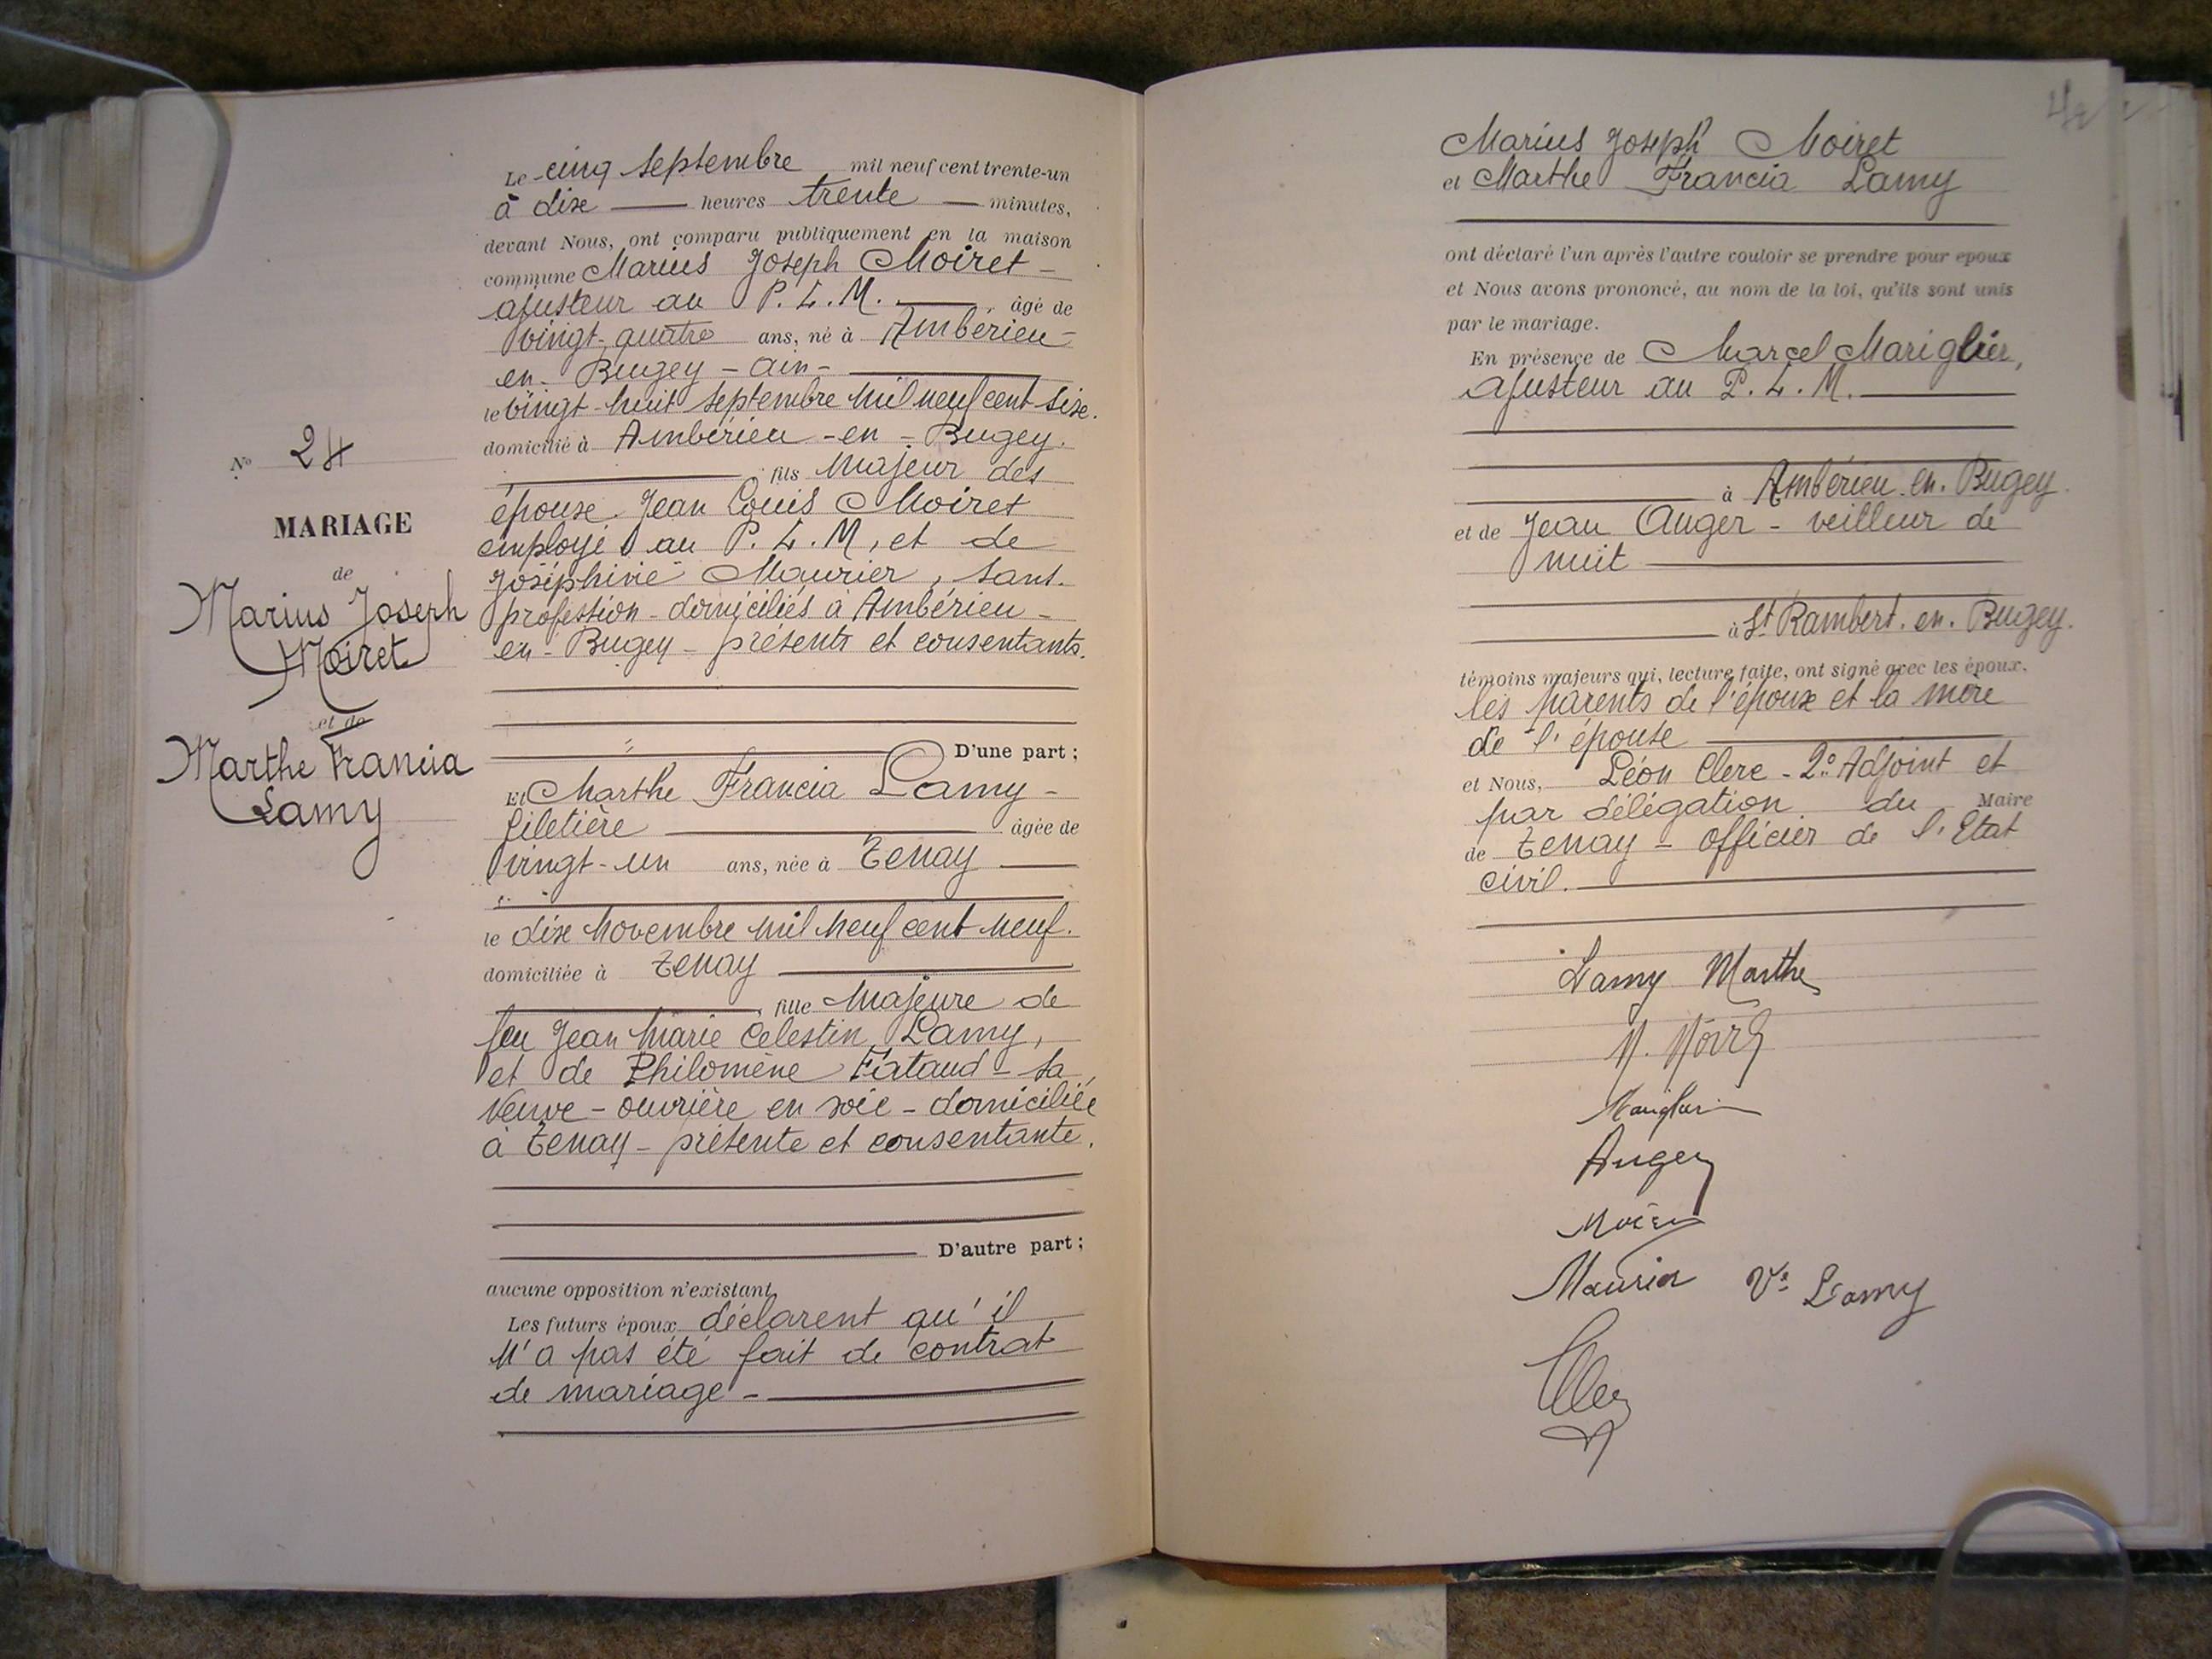 Le cinq septembre mil neuf cent trente-un
à dix heures trente minutes,
devant Nous, ont comparu publiquement en la maison
commune Marius Joseph Moiret -
ajusteur au P. L. M. âgé de
vingt-quatre ans, né à Ambérieu-
en-Bugey - Ain -
le vingt-huit septembre mil neuf cent six.
domicilié à Ambérieu-en-Bugey.
fils Majeur des
époux Jean Louis Moiret
employé au P. L. M, et de
Joséphine Maurier, sans-
profession - domiciliés à Ambérieu-
en-Bugey - présents et consentants.
D'une part ;
Et Marthe Francia Lamy -
filetière âgée de
vingt-un ans, née à Tenay
le dix novembre mil neuf cent neuf.
domiciliée à Tenay
fille Majeure de
feu Jean Marie Célestin Lamy,
et de Philomène Fataud - sa
veuve - ouvrière en soie - domiciliée
à Tenay - présente et consentante.
D'autre part ;
aucune opposition n'existant.
Les futurs époux déclarent qu'il
n'a pas été fait de contrat
de mariage -
N° 24
MARIAGE
de
Marius Joseph
Moiret
et de
Marthe Francia
Lamy
Marius Joseph Moiret
et Marthe Francia Lamy
ont déclaré l'un après l'autre vouloir se prendre pour époux
et Nous avons prononcé, au nom de la loi, qu'ils sont unis
par le mariage.
En présence de Marcel Mariglier,
ajusteur au P. L. M.
à Ambérieu.en.Bugey.
et de Jean Auger - veilleur de
nuit
à St Rambert.en.Bugey.
témoins majeurs qui, lecture faite, ont signé avec les époux.
les parents de l'époux et la mère
de l'épouse
et Nous, Léon Clerc - 2e Adjoint et
par délégation du Maire
de Tenay - officier de l'Etat
civil.
Lamy Marthe
M. Moiret
Auger
Maurier Ve Lamy